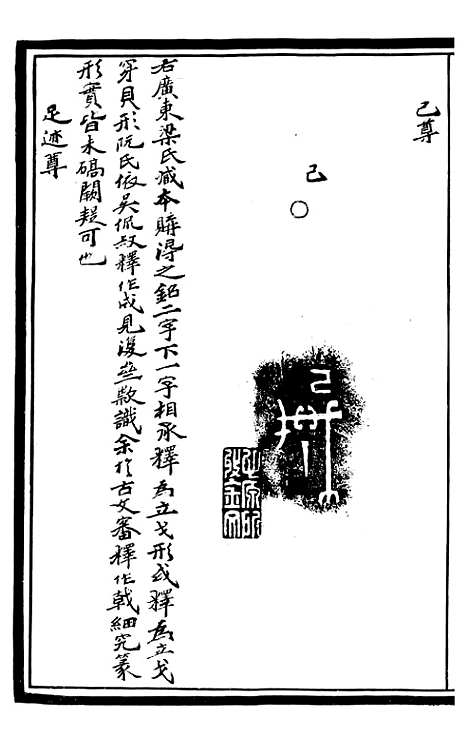 己尊
己
○
右廣東梁氏藏本購得之銘二字下一字相承釋為立戈形或釋為立戈
穿貝形阮氏依吳侃叔釋作成見漫無款識余於古文審釋作戟細究篆
形實皆未碻闕疑可也
足迹尊